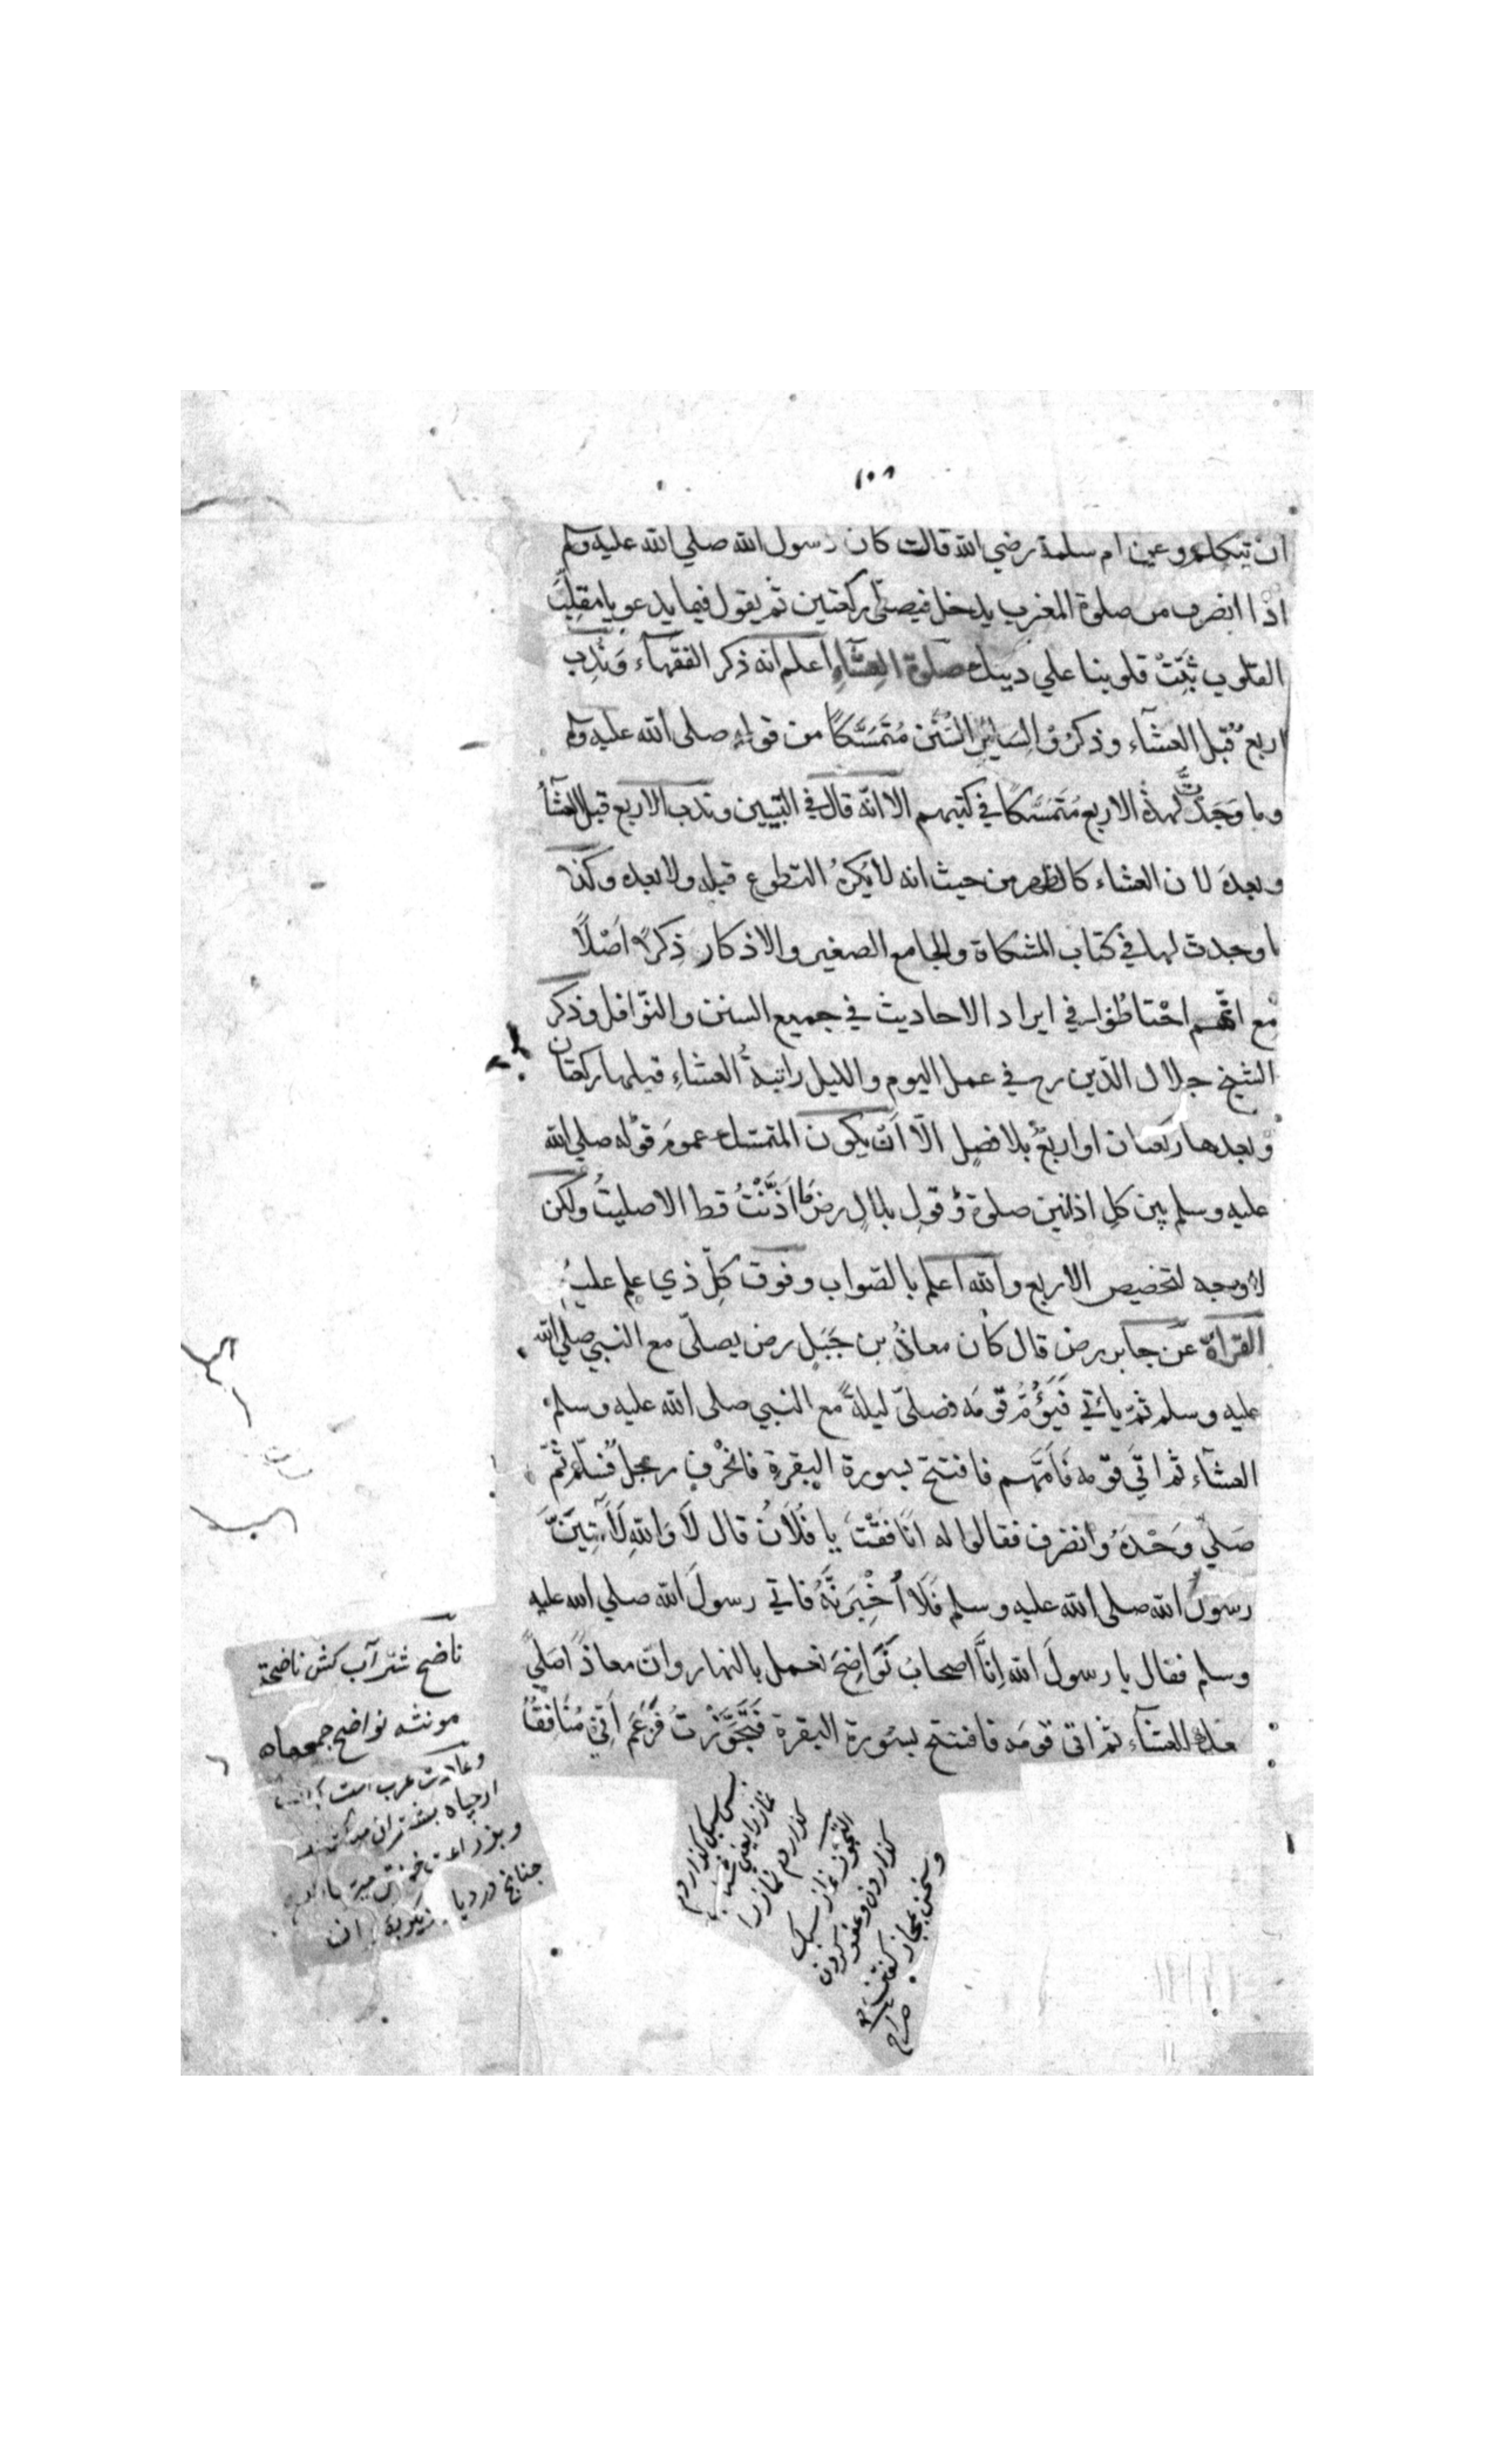 ١٠٨
ان يتكلم وعن ام سلمة رضي الله قالت كان رسول الله صلي الله عليه وسلم
اذا انصرف من صلوة المغرب يدخل فيصلّي ركعتين ثم يقول فيما يدعو يا مقلّبَ
القلوب ثبّتْ قلوبنا علي دينك صلوة العِشَآءِ اعلم انه ذكر الفقهآء وَنُدِب
اربعٌ قبل العشآء وذكرُوْا لِسَايِرِ السُّنَن مُتَمَسَّكًا من قوله صلى الله عليه وسلم
وما وَجَدْتُّ لهذه الاربع مُتَمَسَّكًا في كتبهم الا انّه قال في التبيين وندب الاربع قبل العشآء
وبعدَه لان العشاء كالظهر من حيث انه لا يُكرَهُ التطوع قبله ولا بعده وكذا
ما وجدت لها في كتاب المشكاة والجامع الصغير والاذكار ذِكرًا اَصْلًا
مع انّهم احْتاطُوا في ايراد الاحاديث في جميع السنن والنّوافل وذكر
الشيخ جلال الدّين رح في عمل اليوم والليل راتبةُ العشاءِ قبلها ركعتان
وبعدها ركعتان او اربعٌ بلا فصلٍ الّا اَنْ يكون المتمسك عمومَ قوْلِه صلي الله
عليه وسلم بين كلِ اذانين صلوة وقولِ بلالٍ رض ما اَذَّنْتُ قط الا صليتُ ولكن
لا وجه لتخصيص الاربع والله اعلم بالصّواب وفوق كلِّ ذي علم عليمٌ
القراءة عن جابر رض قال كان معاذُ بن جَبَلٍ رض يصلّي مع النبي صلي الله
عليه وسلم ثمّ يأتي فَيَؤُمُّ قَومَه فصلىّ ليلةً مع النبي صلى الله عليه وسلم
العشآء ثم اتي قَوْمه فَاَمَّهم فافتتح بسورة البقرة فانحْرف رجلٌ فسلّم ثُمّ
صَلّي وَحْدَهُ وانصرف فقالوا له اَنَافَقْتَ يا فُلَانُ قال لَا وَاللهِ لَآتِيَنَّ
رسولَ الله صلى الله عليه وسلم فَلَاُخْبِرَنَّهُ فاتي رسولَ الله صلي الله عليه
وسلم فقال يا رسولَ الله اِنَّا اصحابُ نَوَاضِحَ نعمل بالنهار وانّ معاذًا صَلّي
معك العشآء ثم اتى قَومَه فافتتح بسُورة البقرة فتجَوَّزْتُ فَزَعَمَ اَنّي مُنَافِقٌ
ناضح شتر آب كش ناضحة
مونثه نواضح جمعاه
وعادت عرب است
از چاه بشتران
چنانچ در ديار
نماز را يعني
كذاردم نماز را
التجوّز نماز سبك
كذاردن وعفو كردن
وسخن بمجاز كفتن
صراح